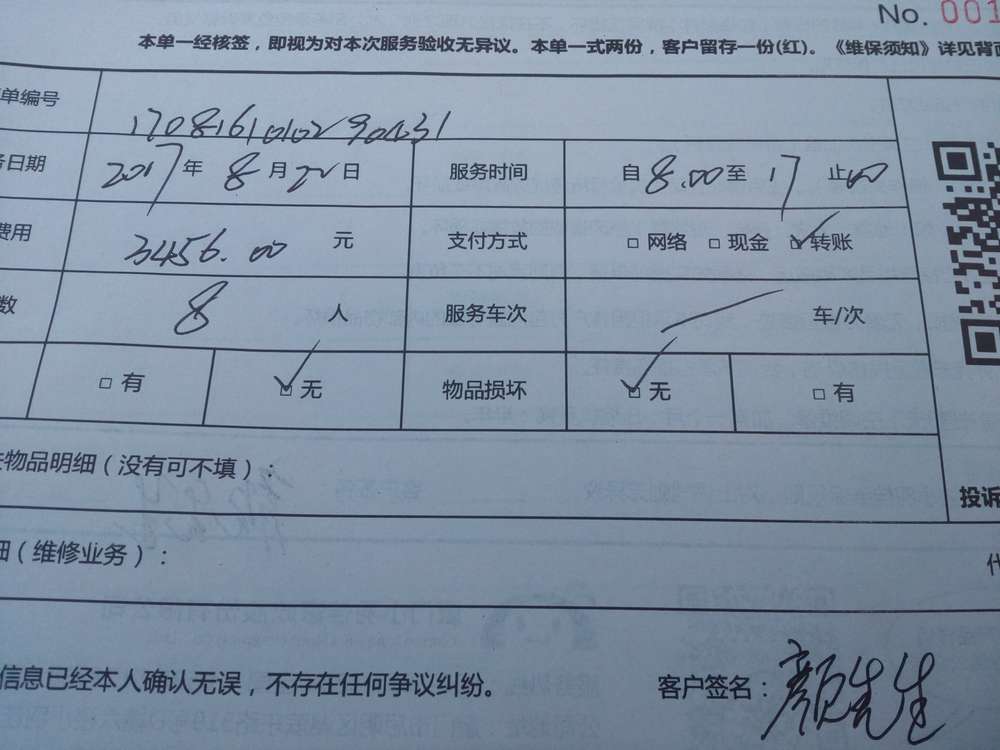 No. 001
本单一经核签，即视为对本次服务验收无异议。本单一式两份，客户留存一份(红)。《维保须知》详见背面
单编号
日期 2017年8月22日 服务时间 自8:00至17止00
费用 3456.00 元 支付方式 □ 网络 □ 现金 ☑ 转账
数 8 人 服务车次 车/次
□ 有 ☑ 无 物品损坏 ☑ 无 □ 有
物品明细（没有可不填）：
投诉
细（维修业务）：
信息已经本人确认无误，不存在任何争议纠纷。 客户签名：颜先生